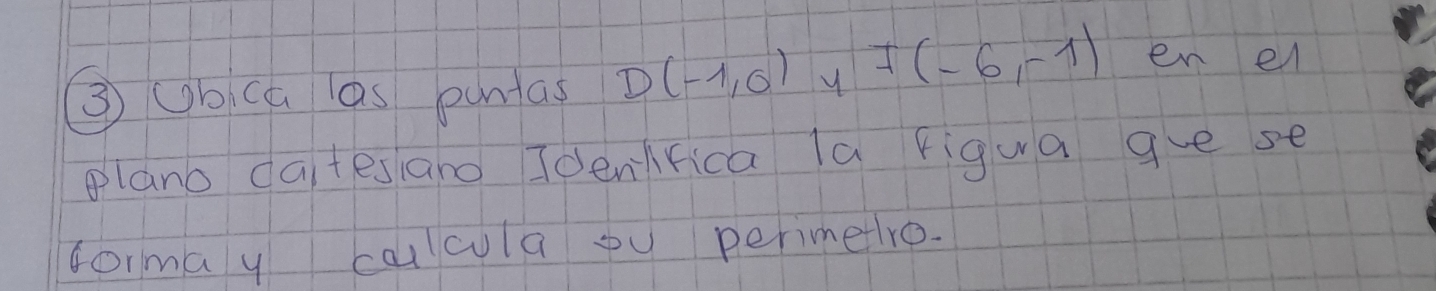 ③ Ubica las puntas D(-1,0) y I(-6,-1) en el
plano cartesiano Identifica la figura que se
forma y calcula su perimetro.